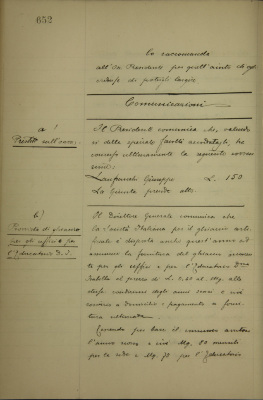 652
lo raccomanda
all'On. Presidente per quell'aiuto che egli
credesse di potergli largire
Comunicazioni
a)
Prestito sull'onore
Il Presidente comunica che, valendosi
della speciale facoltà accordatagli, ha
concesso ultimamente la seguente sovvenzione:
Lanfranchi Giuseppe L. 150
La Giunta prende atto
b)
Provvista di ghiaccio
per gli uffici e per
l'Educatorio
Il Direttore Generale comunica che
la Società Italiana per il ghiaccio
è disposta anche quest'anno ad
assumere la fornitura del ghiaccio
per gli uffici e per l'Educatorio
al prezzo di L. al Mg. alle
stesse condizioni degli anni scorsi e cioè
a domicilio e pagamento a fornitura
ultimata.
Tenendo per base il consumo
l'anno scorso e cioè Mg. 80
per la sede e Mg. per l'Educatorio